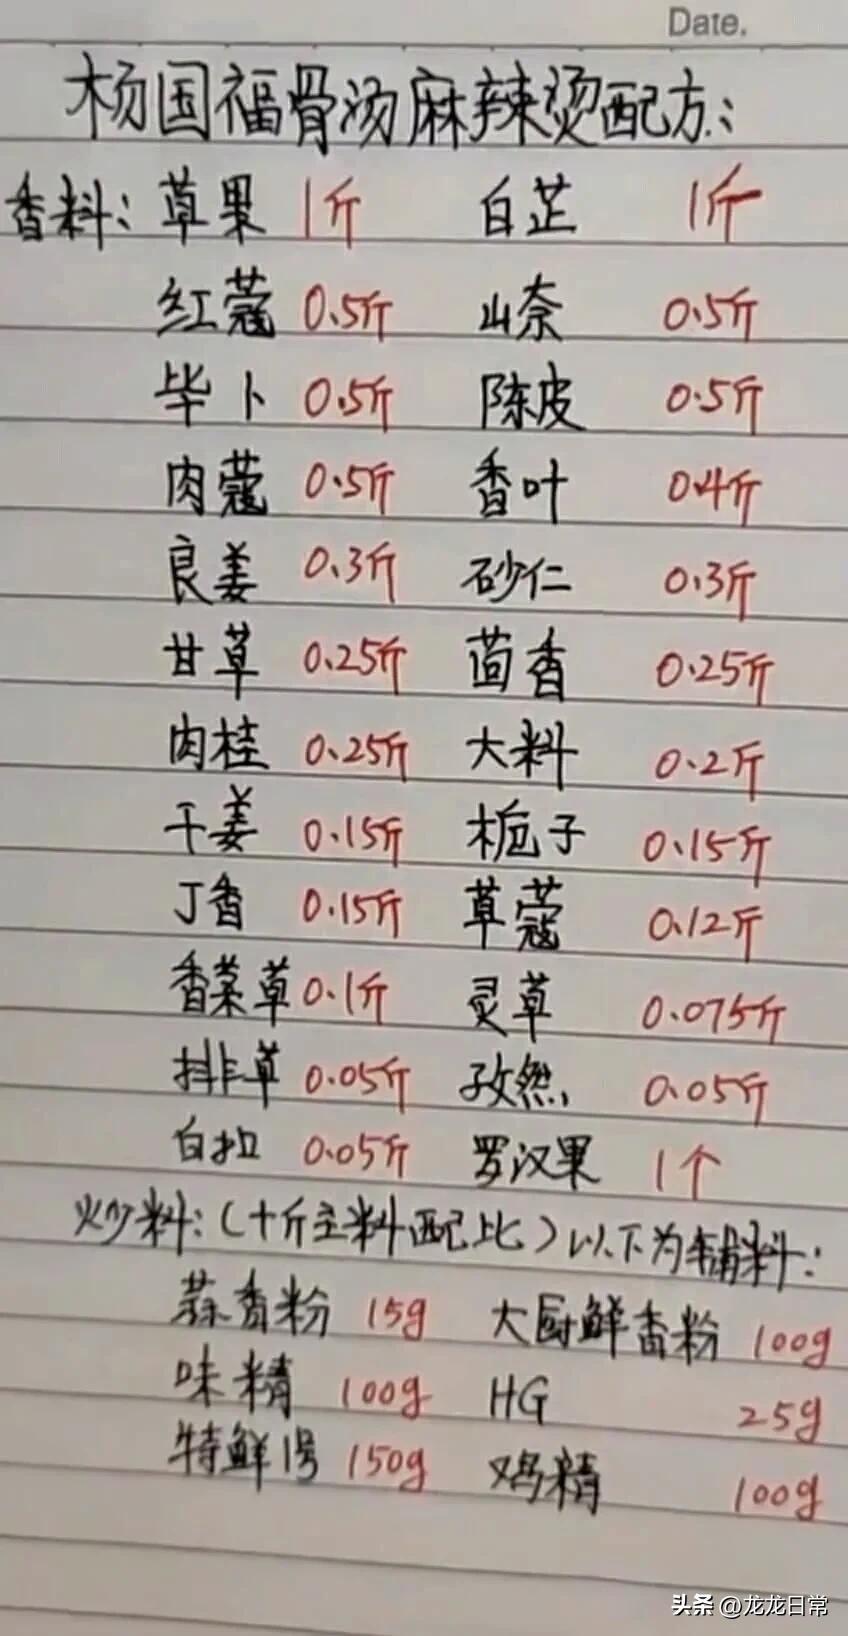 Date.
杨国福骨汤麻辣烫配方:
香料: 草果 1斤 白芷 1斤
红蔻 0.5斤 山奈 0.5斤
毕卜 0.5斤 陈皮 0.5斤
肉蔻 0.5斤 香叶 0.4斤
良姜 0.3斤 砂仁 0.3斤
甘草 0.25斤 茴香 0.25斤
肉桂 0.25斤 大料 0.2斤
干姜 0.15斤 栀子 0.15斤
丁香 0.15斤 草蔻 0.12斤
香菜草 0.1斤 灵草 0.075斤
排草 0.05斤 孜然 0.05斤
白扣 0.05斤 罗汉果 1个
炒料:(十斤主料配比)以下为辅料:
蒜香粉 15g 大厨鲜香粉 100g
味精 100g HG 25g
特鲜1号 150g 鸡精 100g
头条 @龙龙日常